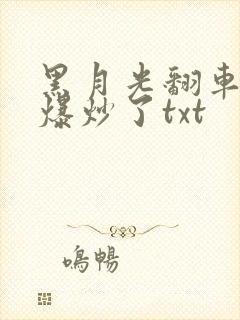 黑月光翻車
爆炒了txt
鳴暢